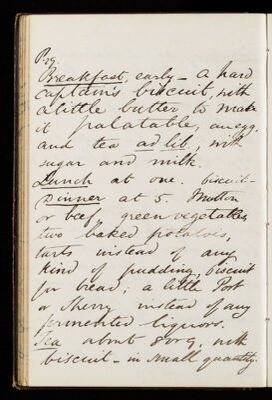 Breakfast, early – a hard
captain's biscuit, with
a little butter to make
it palatable, an egg.
and tea ad lib, with
sugar and milk.
Lunch at one. biscuit –
Dinner at 5. Mutton
or beef, green vegetables,
two baked potatoes,
tarts instead of any
kind of pudding, biscuit
for bread; a little Port
or Sherry instead of any
fermented liquors.
Tea about 8 or 9, with
biscuit – in small quantity.